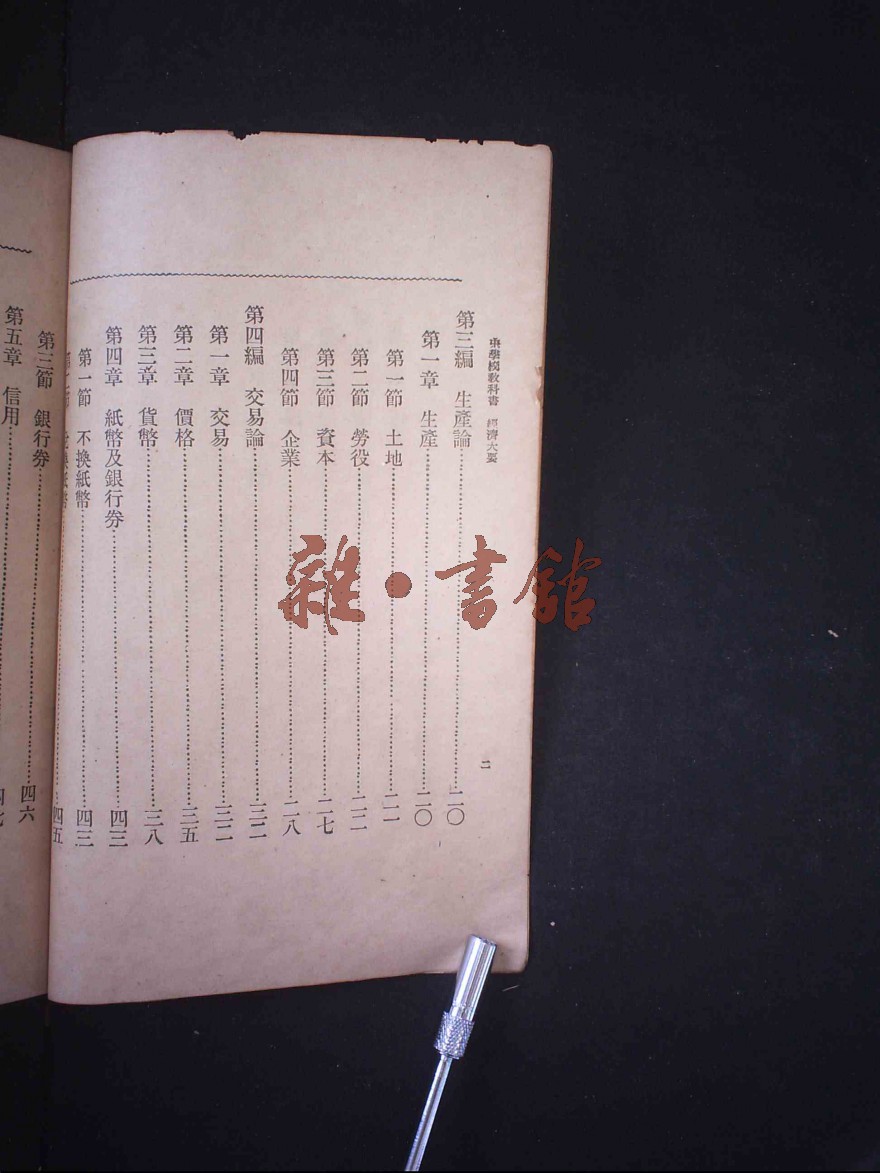 中學校教科書 經濟大要
二
第三編 生產論……二〇
第一章 生產……二〇
第一節 土地……二一
第二節 勞役……二二
第三節 資本……二七
第四節 企業……二八
第四編 交易論……三二
第一章 交易……三二
第二章 價格……三五
第三章 貨幣……三八
第四章 紙幣及銀行券……四三
第一節 不換紙幣……四三
四五
第三節 銀行券……四六
第五章 信用……
雜·書館